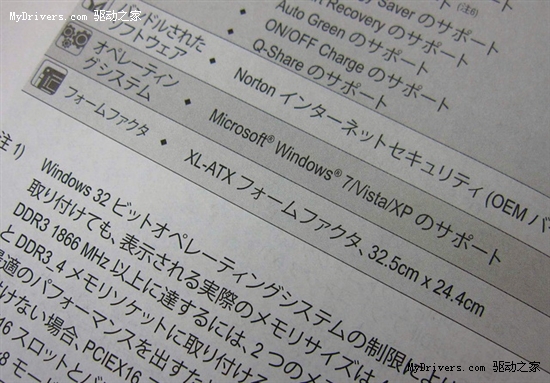 MyDrivers.com 驱动之家
Saver のサポート (注6)
Recovery のサポート
Auto Green のサポート
ON/OFF Charge のサポート
Q-Share のサポート
ルされた
ソフトウェア
Norton インターネットセキュリティ (OEM バー
オペレーティン
グシステム
◆ Microsoft® Windows® 7/Vista/XP のサポート
フォームファクタ
◆ XL-ATX フォームファクタ、32.5cm x 24.4cm
注 1)
Windows 32 ビットオペレーティングシステムの制限
取り付けても、表示される実際のメモリサイズは
DDR3 1866 MHz 以上に達するには、2 つのメ
と DDR3_4 メモリソケットに取り付け
適のパフォーマンスを出すた
けない場合、PCIEX16
16 スロットと
8 モー
MyDrivers.com 驱动之家